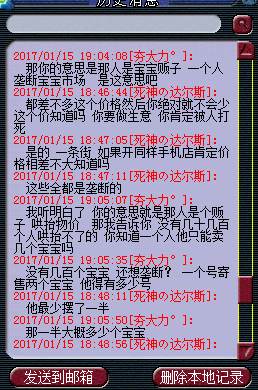 历史消息
2017/01/15 19:04:08[夯大力°]:
那你的意思是那人是宝宝贩子 一个人
垄断宝宝市场 是这意思吧
2017/01/15 18:46:44[死神の达尔斯]:
都差不多这个价格然后你绝对就不会少
这个价知道吗 你要做生意 你肯定被人打
死
2017/01/15 18:47:05[死神の达尔斯]:
是的 一条街 如果开同样手机店肯定价
格相差不大知道吗
2017/01/15 18:47:11[死神の达尔斯]:
这些全都是垄断的
2017/01/15 19:05:07[夯大力°]:
我听明白了 你的意思就是那人是个贩
子 哄抬物价 那我告诉你 没有几十几百
个人哄抬不了的 你知道一个人他只能卖
几个宝宝吗
2017/01/15 19:05:35[夯大力°]:
没有几百个宝宝 还想垄断？ 一个号寄
售两个宝宝 他得有多少号
2017/01/15 18:48:11[死神の达尔斯]:
他最少摆了一半
2017/01/15 19:05:50[夯大力°]:
那一半大概多少个宝宝
2017/01/15 18:48:56[死神の达尔斯]:
发送到邮箱
删除本地记录